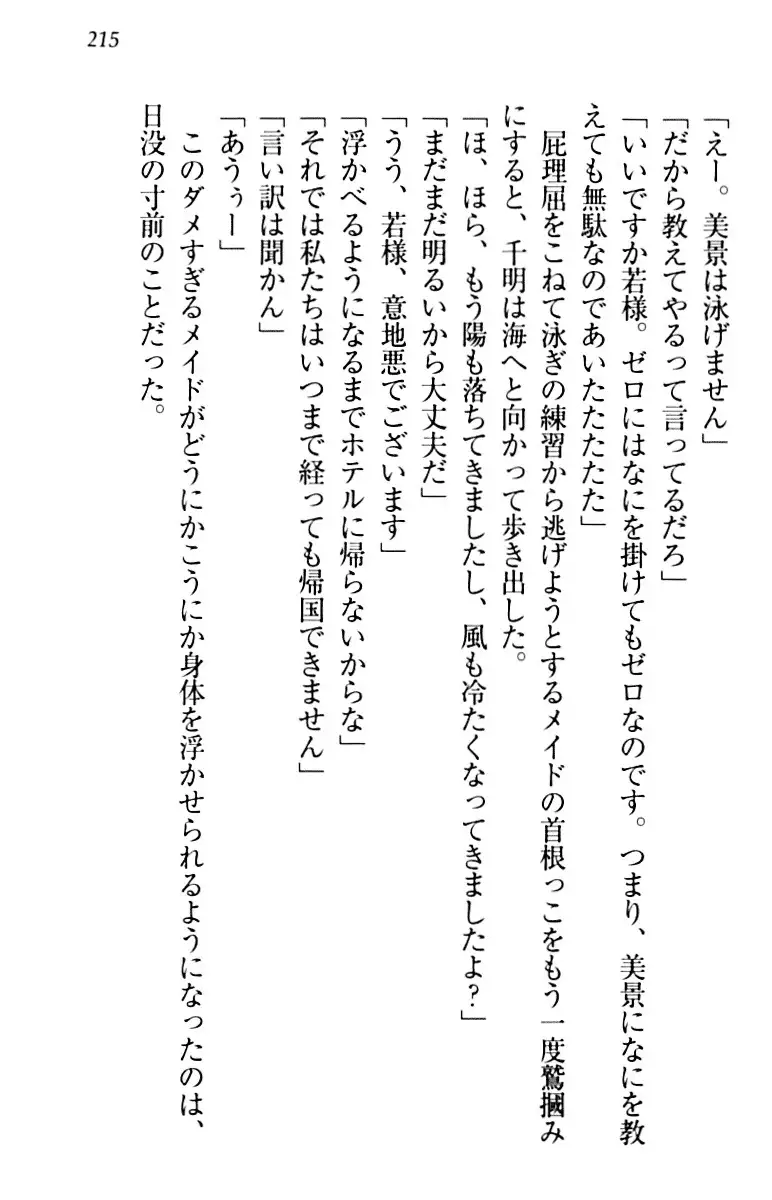 215
「えー。美景は泳げません」
「だから教えてやるって言ってるだろ」
「いいですか若様。ゼロにはなにを掛けてもゼロなのです。つまり、美景になにを教
えても無駄なのであいたたたたた」
屁理屈をこねて泳ぎの練習から逃げようとするメイドの首根っこをもう一度鷲摑み
にすると、千明は海へと向かって歩き出した。
「ほ、ほら、もう陽も落ちてきましたし、風も冷たくなってきましたよ?」
「まだまだ明るいから大丈夫だ」
「うう、若様、意地悪でございます」
「浮かべるようになるまでホテルに帰らないからな」
「それでは私たちはいつまで経っても帰国できません」
「言い訳は聞かん」
「あうぅー」
このダメすぎるメイドがどうにかこうにか身体を浮かせられるようになったのは、
日没の寸前のことだった。